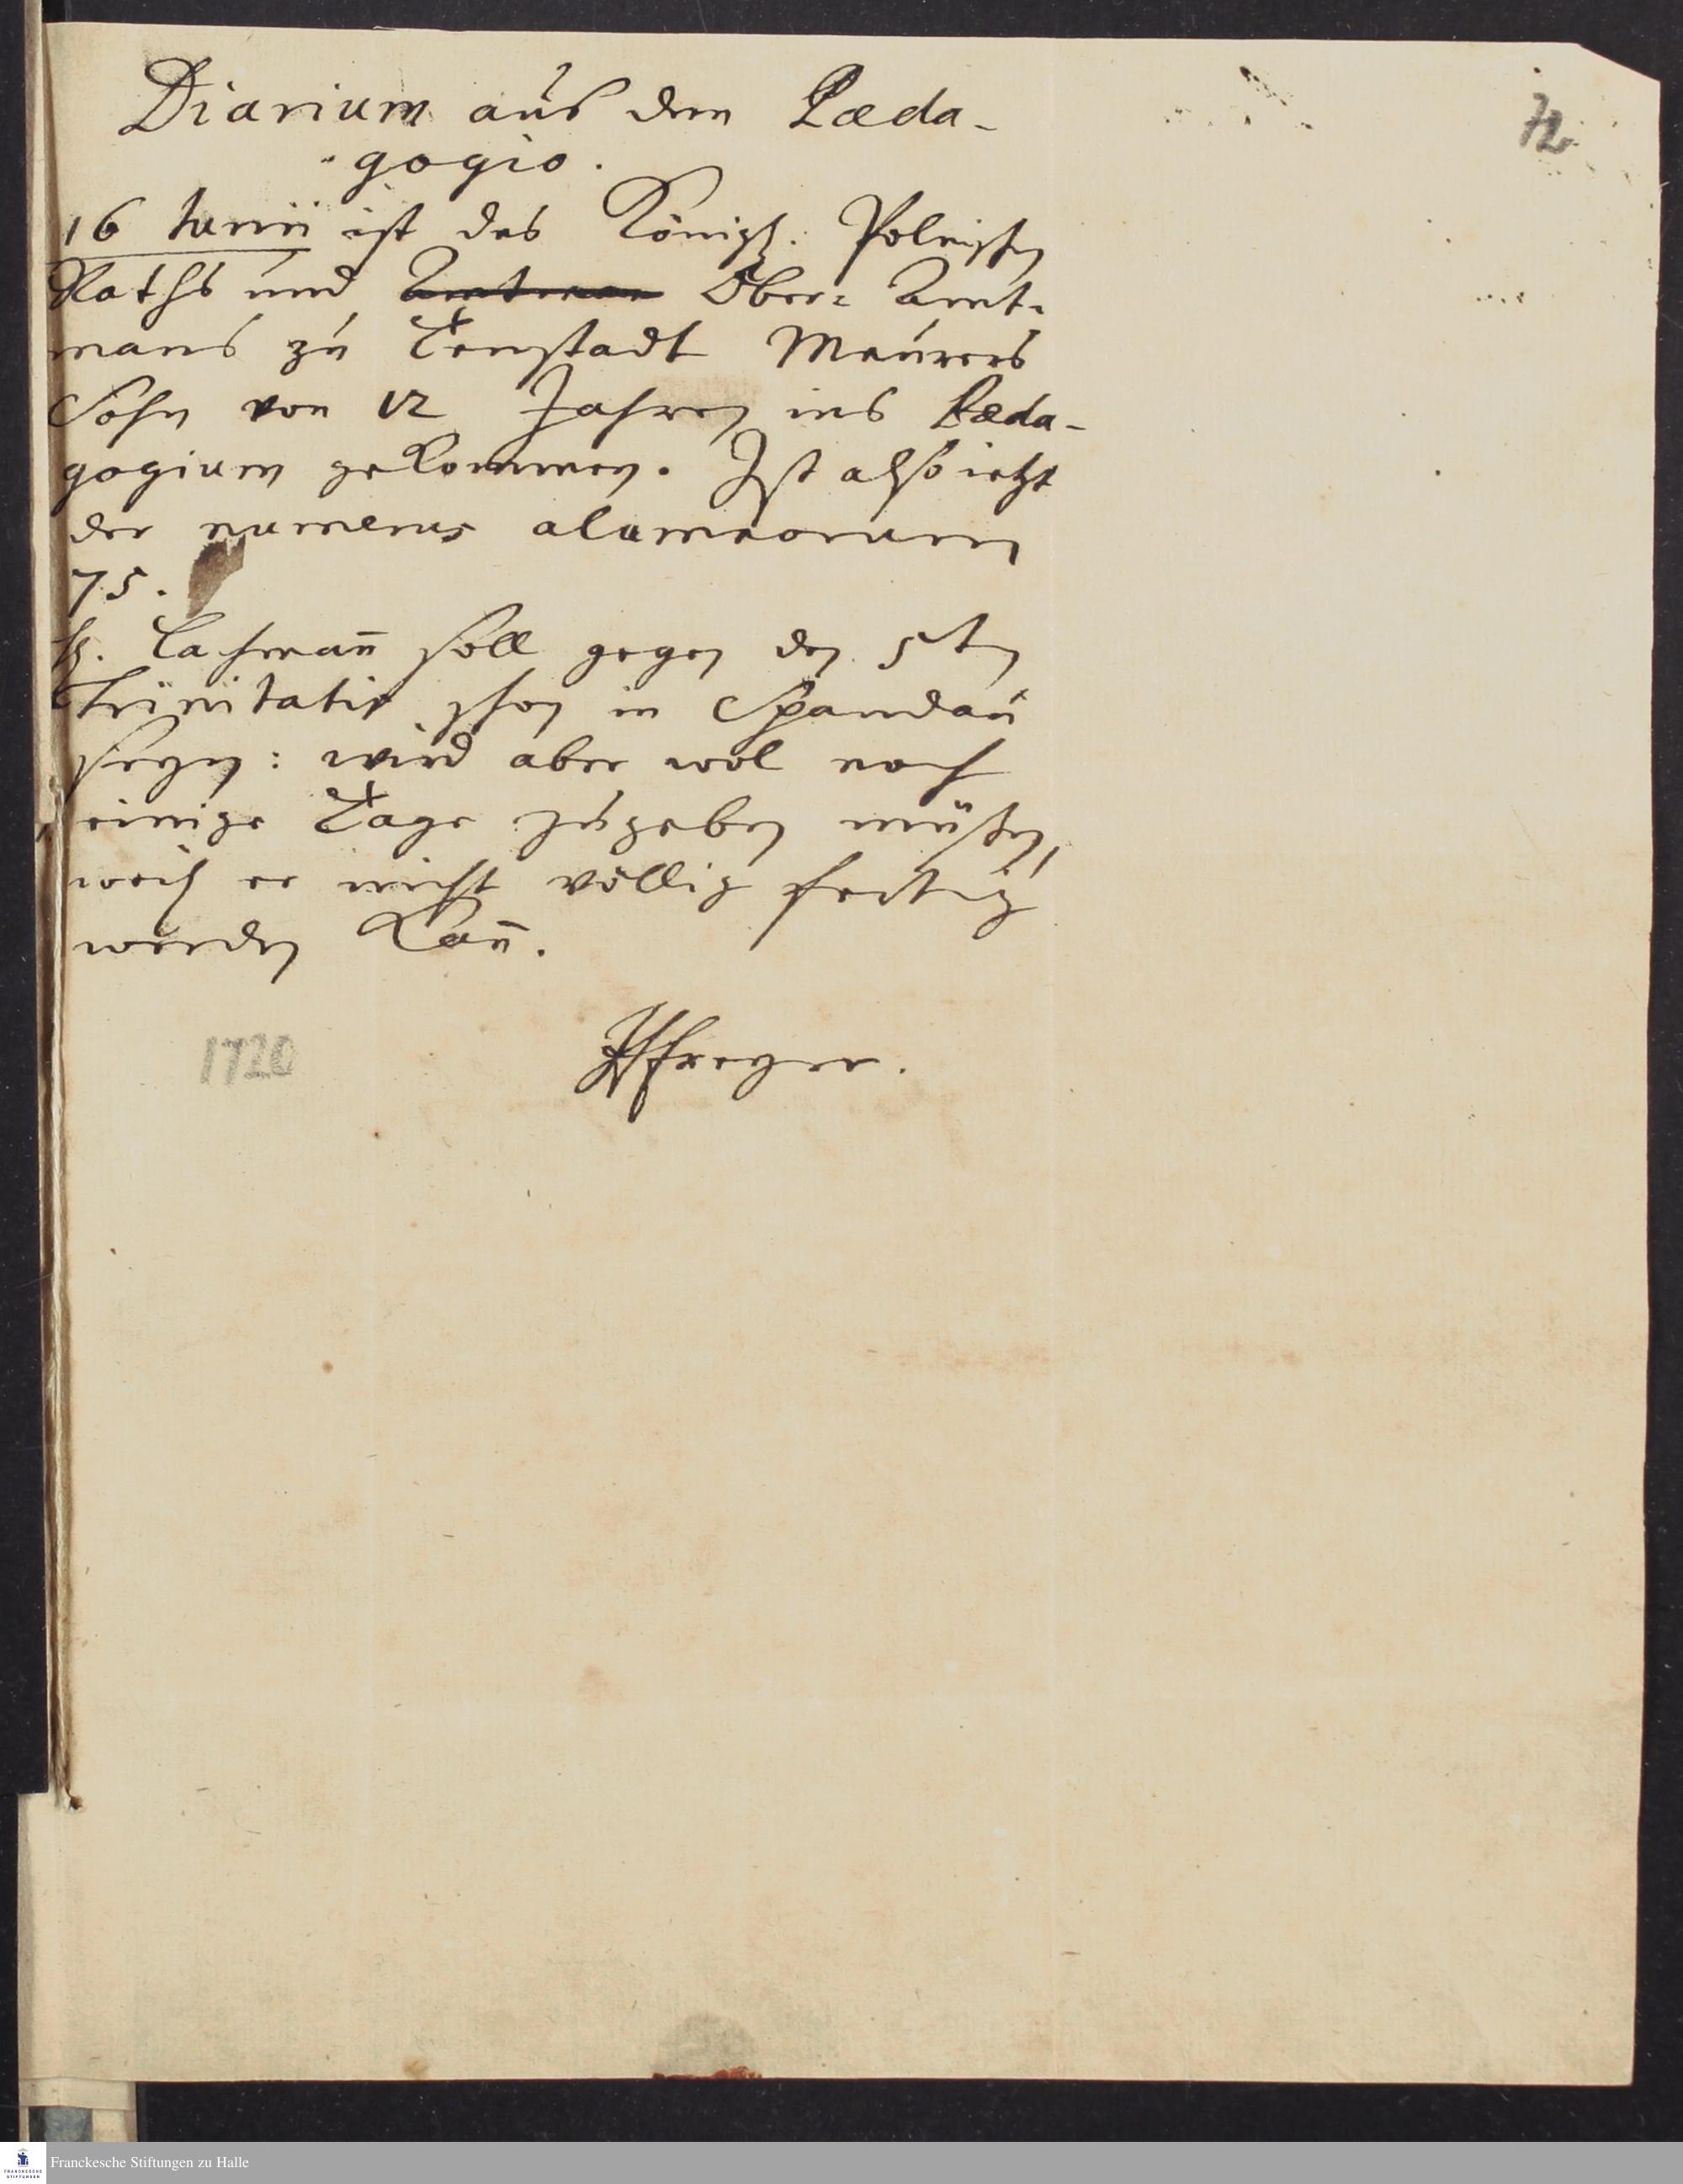 Diarium aus dem Pæda-
gogio.
72
16 Junii ist des Königl. Polnischen
Raths und Amtman Ober- Amt-
mans zu Tenstadt Meurers
Sohn von 12 Jahren ins Pæda-
gogium gekommen. Ist also ietzt
der numerus alumnorum
75.
H. Lachmañ soll gegen den 5ten
Trinitatis schon in Spandau
seyn: wird aber wol noch
einige Tage zugeben müssen,
weil er nicht völlig fertig
werden kañ.
1720
HFreyer.
Franckesche Stiftungen zu Halle
FRANCKESCHE
STIFTUNGEN